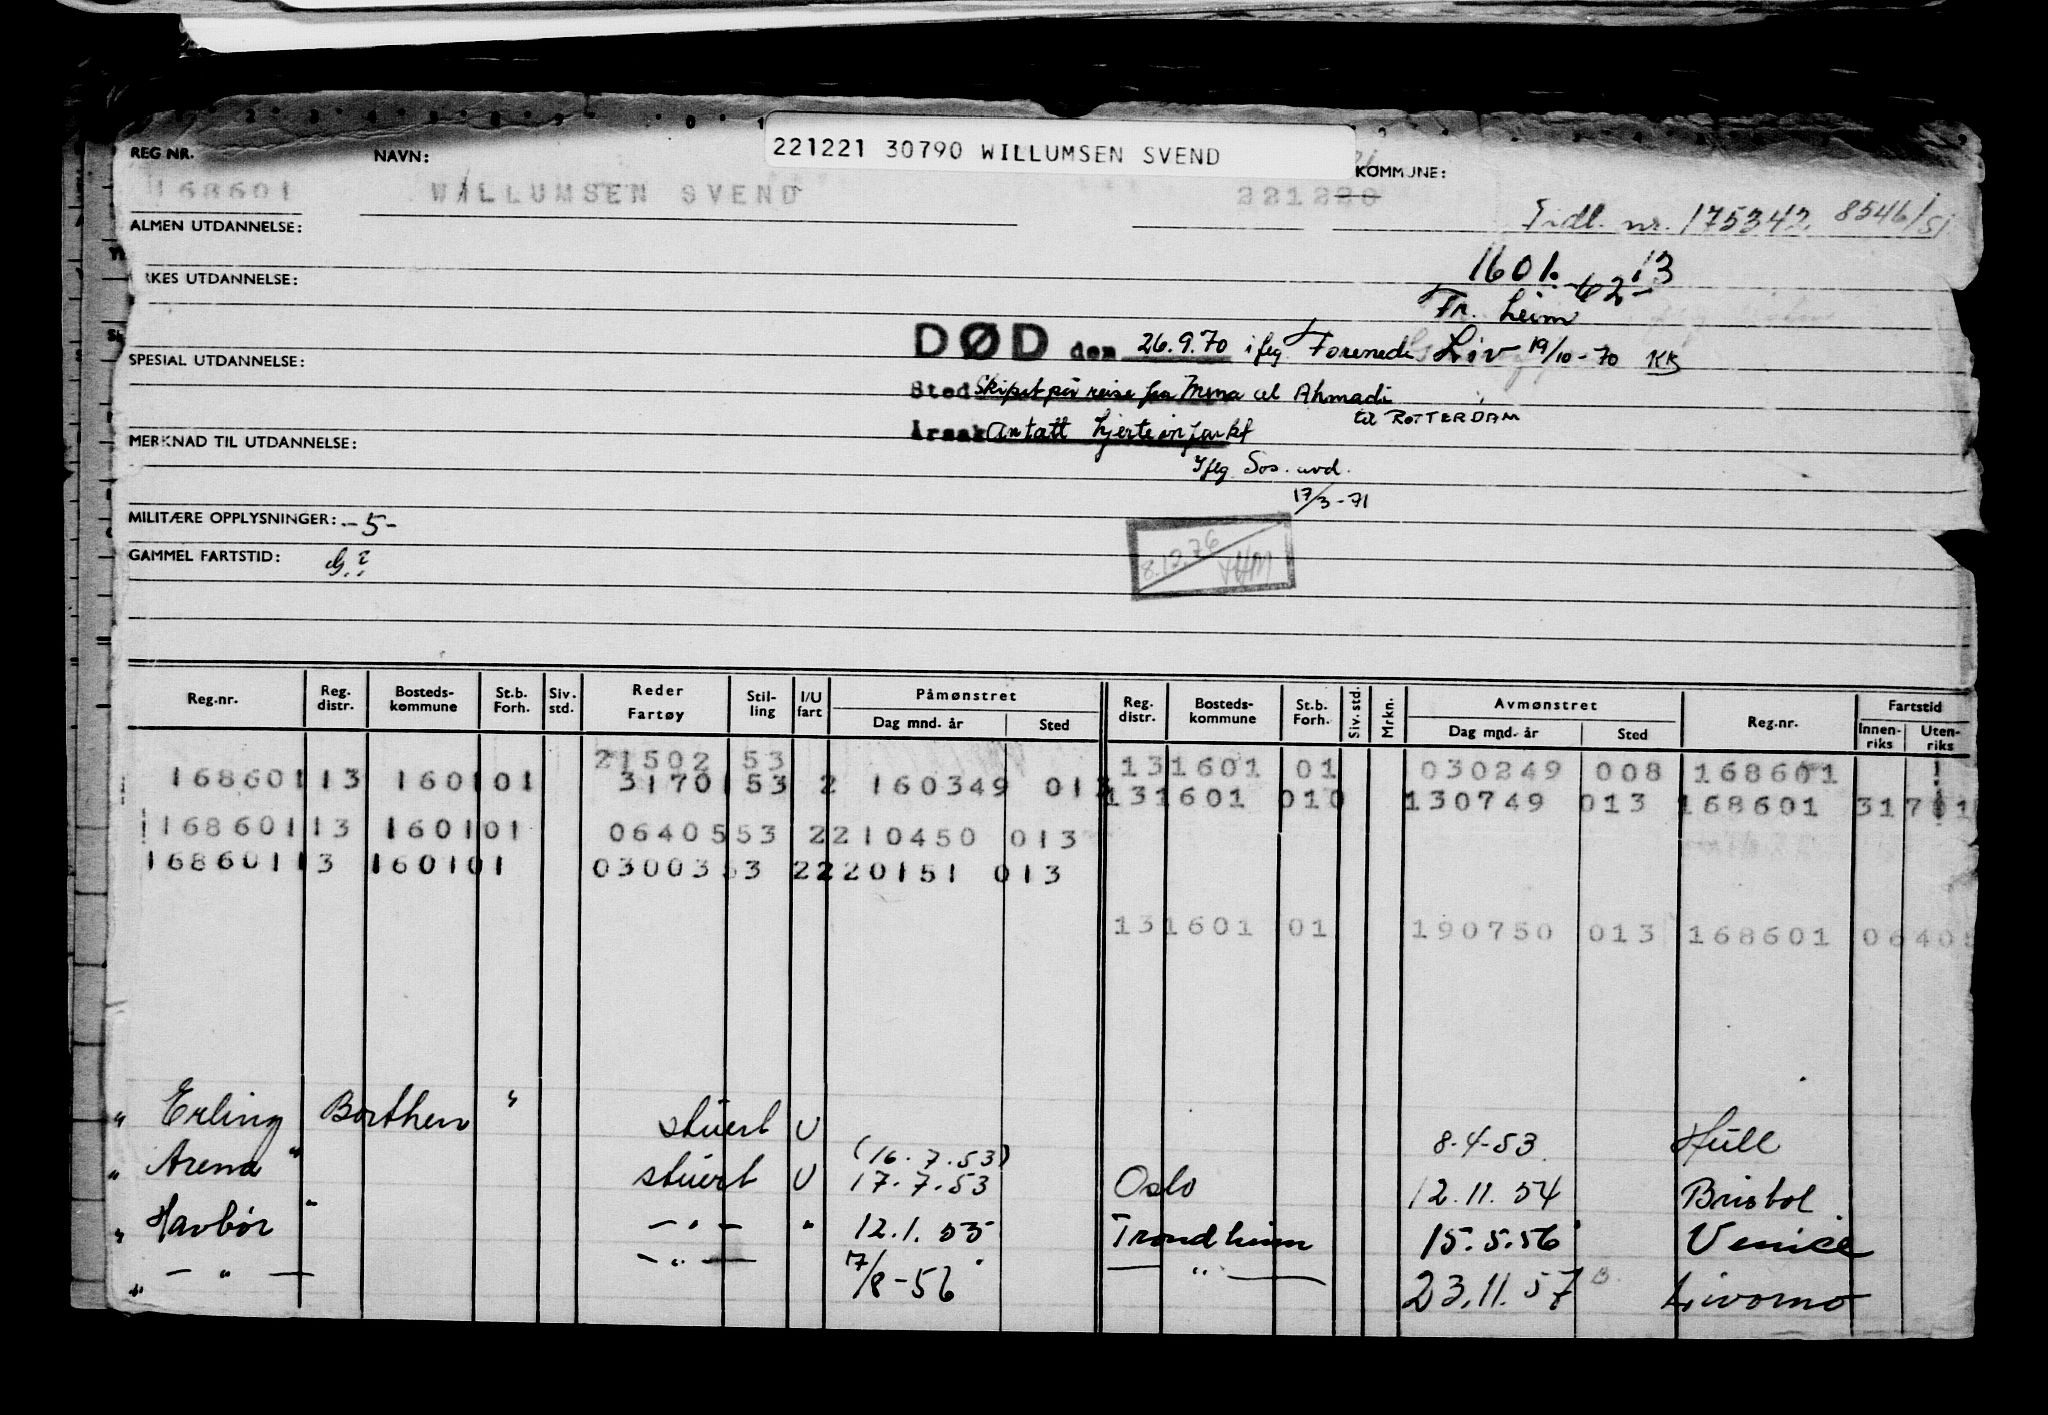 221221 30790 WILLUMSEN SVEND
REG NR. NAVN: KOMMUNE:
168601 WILLUMSEN SVEND 221220 21
Tidl. nr. 175342 8546/51
ALMEN UTDANNELSE:
1601. 13
YRKES UTDANNELSE:
62-
Tr. heim
DØD den 26.9.70 iflg. Forenede Liv 19/10-70 KB
SPESIAL UTDANNELSE:
Sted Skipet på reise fra Mena al Ahmadi
til ROTTERDAM
Årsak Antatt hjerteinfarkt
MERKNAD TIL UTDANNELSE:
Iflg Sos. avd.
17/3-71
MILITÆRE OPPLYSNINGER: -5-
8.12.76 HM
GAMMEL FARTSTID: G.?
Reg.nr. Reg. distr. Bosteds-kommune St.b. Forh. Siv. std. Reder Fartøy Stil-ling I/U fart Påmønstret Dag mnd. år Sted Reg. distr. Bosteds-kommune St.b. Forh. Siv. std. Mrkn. Avmønstret Dag mnd. år Sted Reg.nr. Fartstid Innen-riks Uten-riks
21502 53 131601 01 030249 008 168601
168601 13 160101 31701 53 2 160349 013 131601 010 130749 013 168601 31701
168601 13 160101 06405 53 2 210450 013
168601 13 160101 03003 53 2 220151 013
131601 01 190750 013 168601 06405
" Erling Borthen " stuert U 8-4-53 Hull
(16.7.53)
" Arena " stuert U 17.7.53 Oslo 12.11.54 Bristol
" Havbør " -"- " 12.1.55 Trondheim 15.5.56 Venice
" - " - -"- 17/8-56 - " - 23.11.57 Livorno